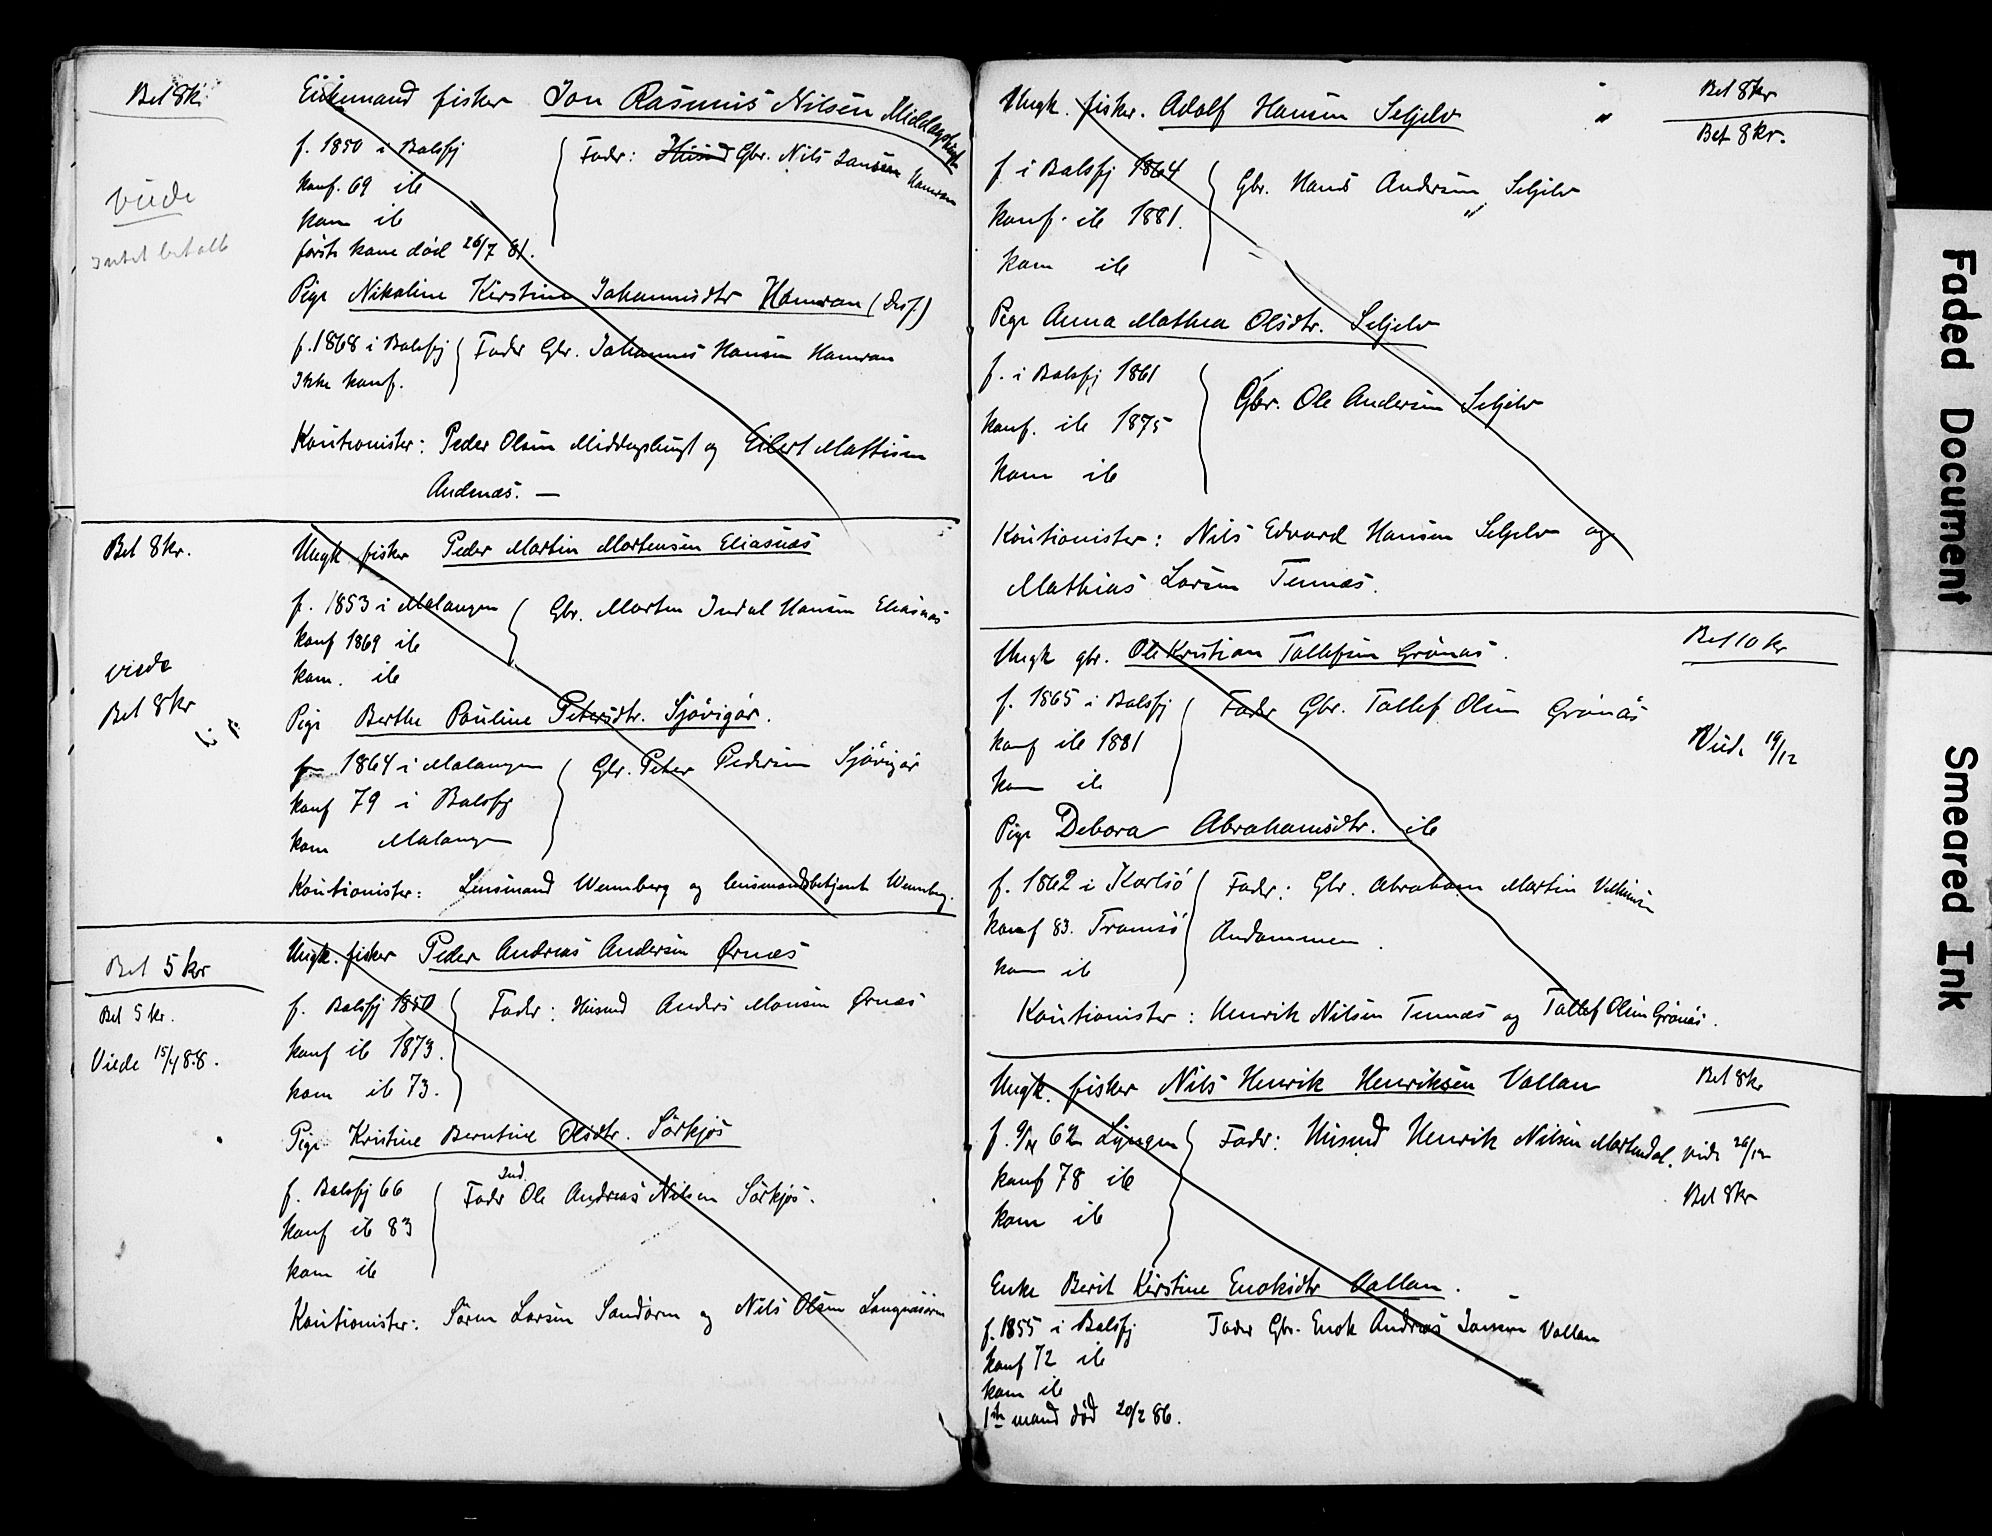 Bet 8 kr
Enkemand fisker Jon Rasmus Nilsen Middagsbugt
f. 1850 i Balsfj
Fader: Husmd Gbr. Nils Jansen Kamran
konf. 69 ib
viede
kom ib
intet betalt
første kone død 26/7 81.
Pige Nikoline Kirstine Johannesdtr Hamran
f. 1868 i Balsfj
Fader Gbr. Johannes Hansen Hamran
Ikke konf.
Kautionister: Peder Olsen Middagsbugt og Eilert Mattisen
Andenæs. —
Bet 8 kr.
Ungk. fisker Peder Martin Mortensen Eliasnæs
f. 1853 i Malangen
Gbr. Morten Indal Hansen Eliasnæs
konf 1869 ib
viede
kom. ib
Bet 8 kr
Pige Berthe Pauline Petersdtr. Sjøvigør.
1864 i Malangen
Gbr. Peter Pedersen Sjøvigør
konf 79 i Balsfj
kom Malangen
Kautionister: Lensmand Wennberg og lensmandsbetjent Wennberg.
Bet 5 kr
Ungk. fisker Peder Andreas Andersen Ørnæs
Bet 5 kr.
f. Balsfj 1850
Fader: Husmd Anders Monsen Ørnæs
Viede 15/4 88.
konf ib 1873.
kom ib 73.
Pige Kristine Berntine Olsdtr. Sørkjos
f. Balsfj 66
Fader Ind. Ole Andreas Nilsen Sørkjos.
konf ib 83
kom ib
Kautionister: Søren Larsen Sandøren og Nils Olsen Langnæsøren
Ungk. fisker. Adolf Hansen Seljelv "
Bet 8 kr
Bet 8 kr.
f i Balsfj 1864
Gbr. Hans Andersen Seljelv
konf. ib 1881.
"
kom ib
Pige Anna Mathea Olsdtr. Seljelv
f. i Balsfj 1861
Gbr. Ole Andersen Seljelv
konf. ib 1875
kom ib
Kautionister: Nils Edvard Hansen Seljelv og
Mathias Larsen Tennes.
Bet 10 kr
Ungk gbr. Ole Kristian Tollefsen Grønås.
f. 1865 i Balsfj
Fader Gbr. Tollef Olsen Grønås
konf ib 1881
Viede 19/12
kom ib
Pige Debora Abrahamsdtr. ib
f. 1862 i Karlsø
Fader: Gbr. Abraham Martin
konf 83. Tromsø
Andammen.
kom ib
Kautionister: Henrik Nilsen Tennes og Tollef Olsen Grønås.
Ungk. fisker Nils Henrik Henriksen Vollan
Bet 8 kr
62 Lyngen
Fader: Husmd Henrik Nilsen Mortendal.
viede 26/12
konf 78 ib
Bet 8 kr
kom ib
Enke Berit Kirstine Enoksdtr Vollan.
f. 1855 i Balsfj
Fader Gbr. Enok Andreas Jansen Vollan
konf 72 ib
kom ib
1ste mand død 20/2 86.
Faded Document
Smeared Ink